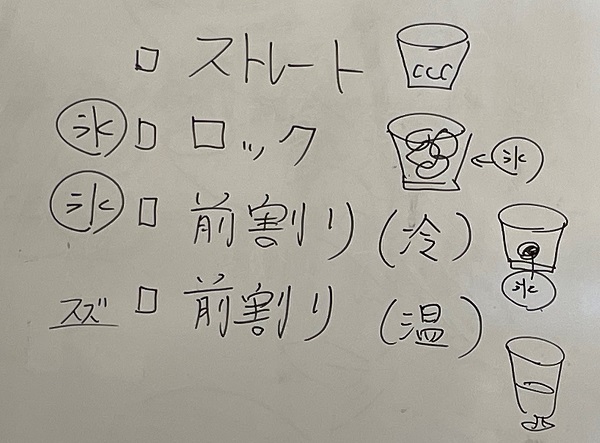 □ ストレート ccc
氷 □ ロック 氷
氷 □ 前割り(冷) 氷
スズ □ 前割り(温)